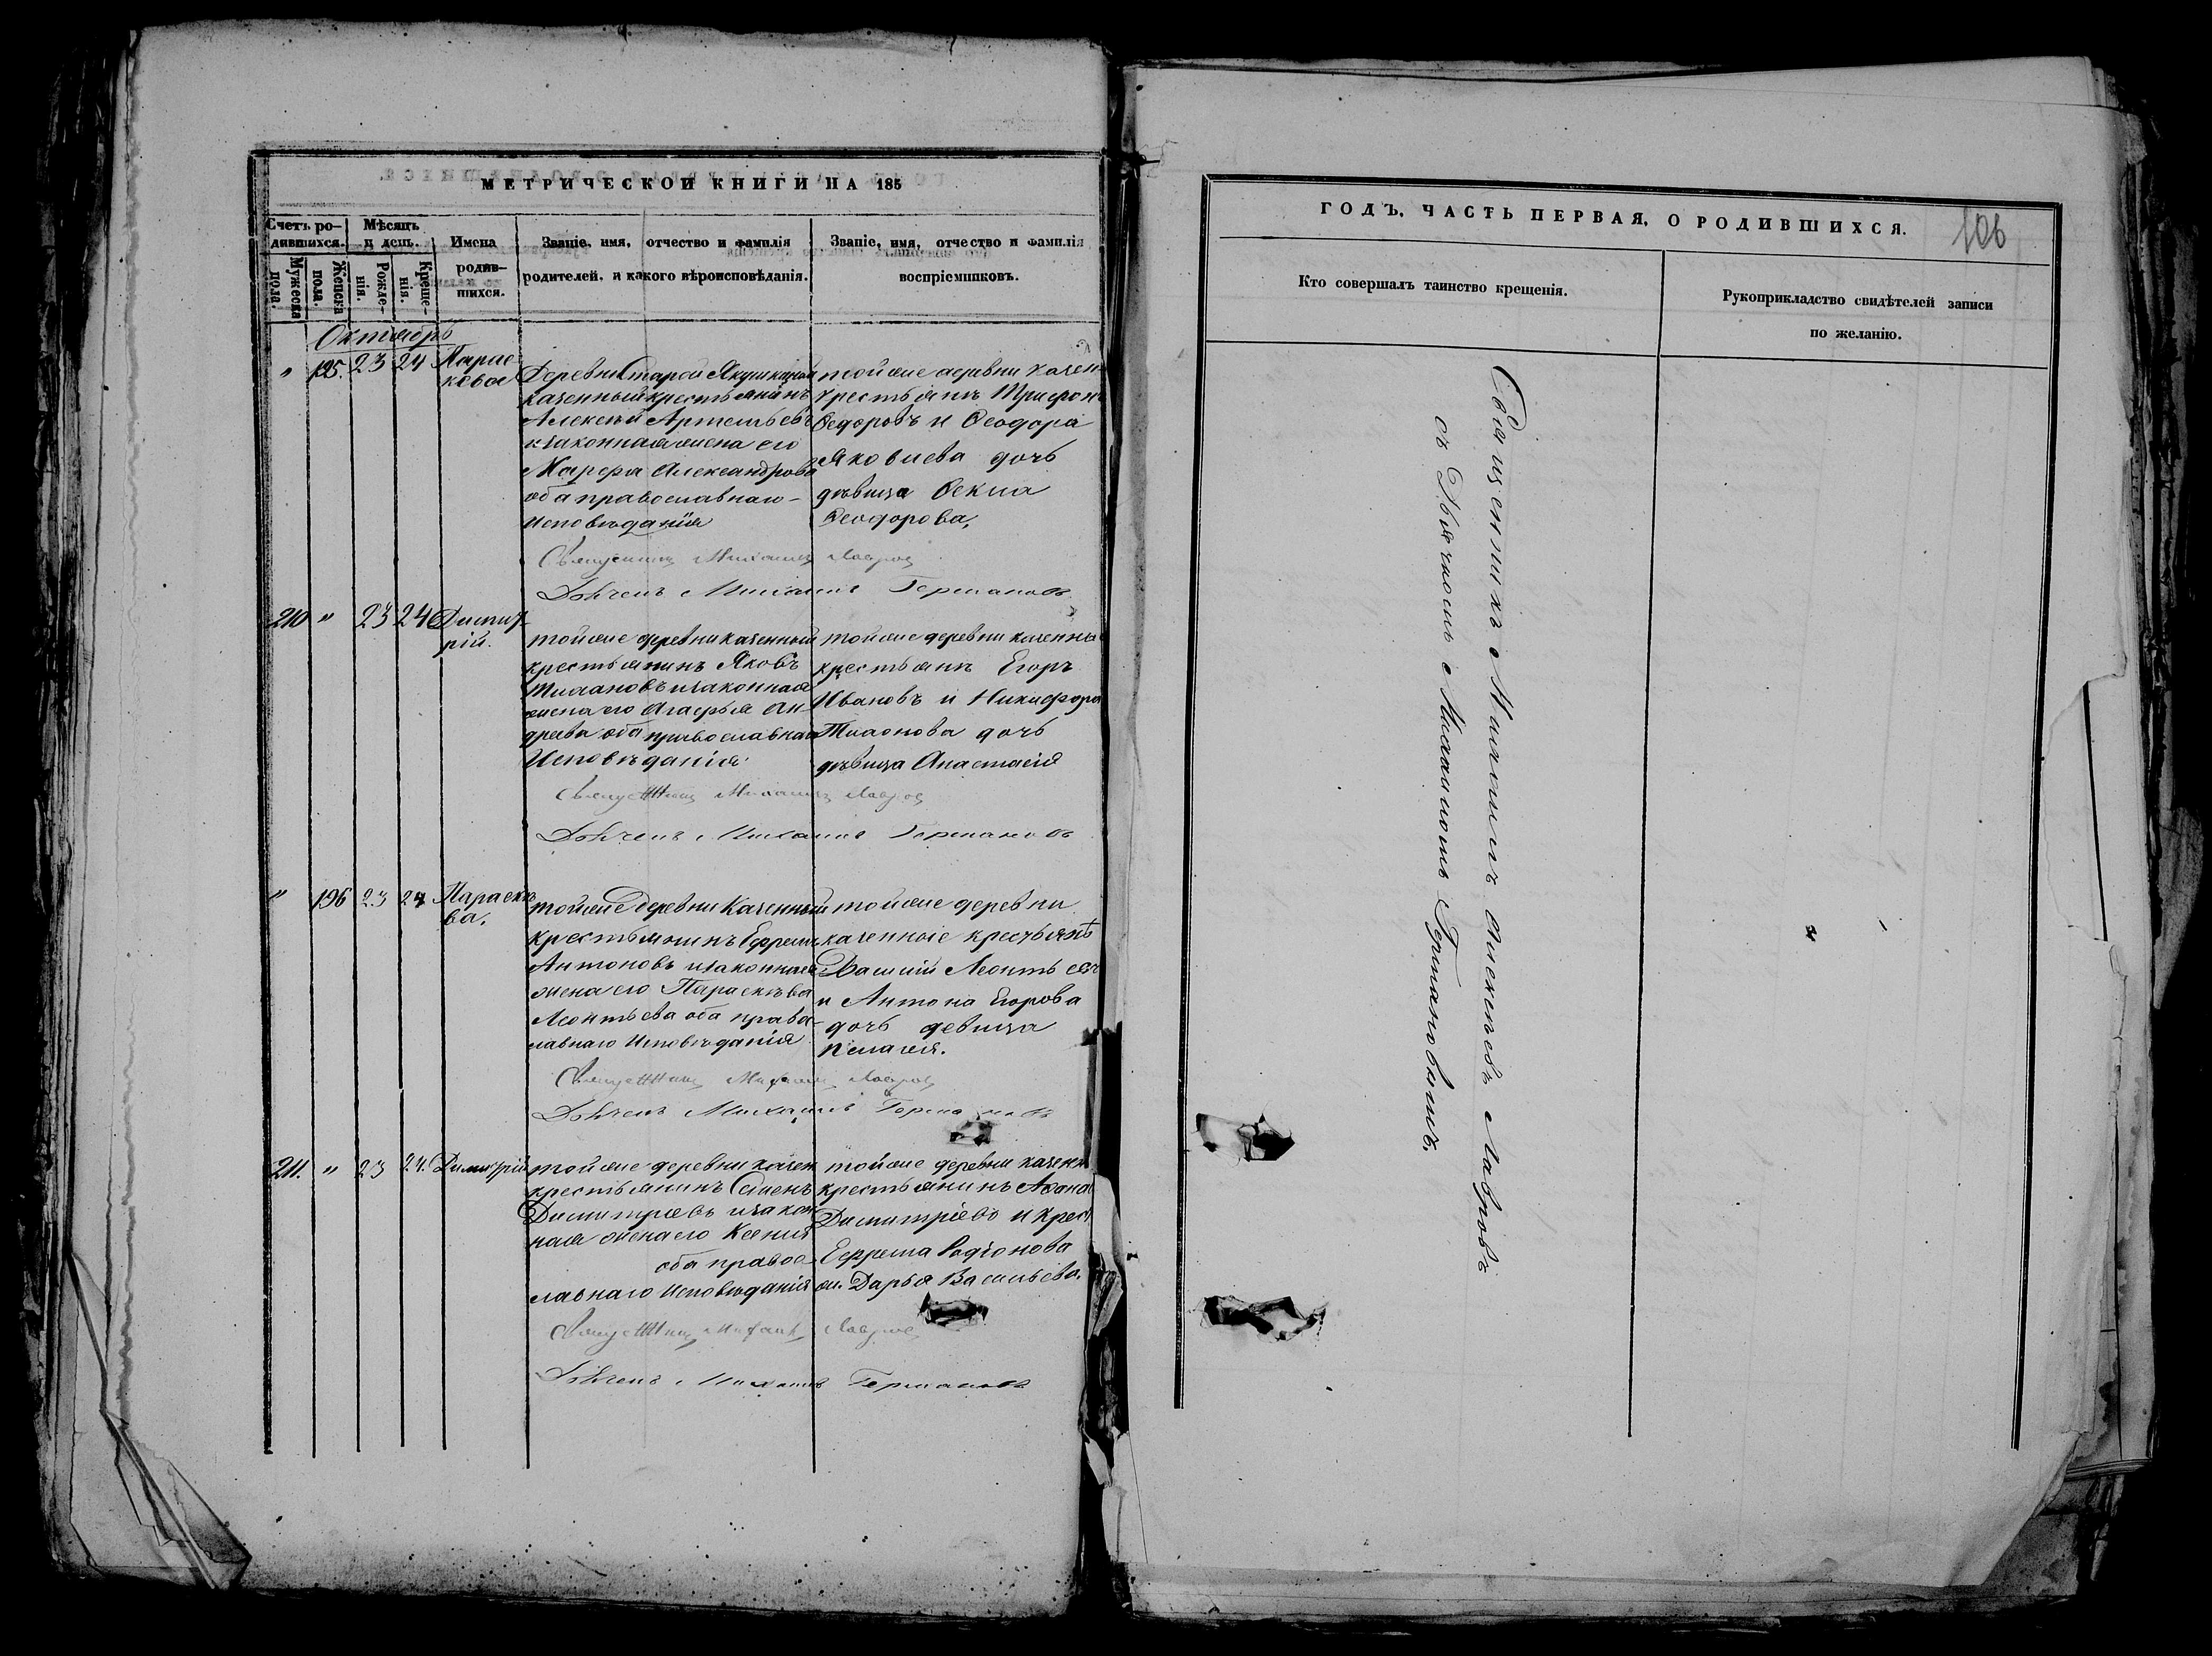 МЕТРИЧЕСКОЙ КНИГИ НА 185
Счетъ ро-
дившихся.
Мѣсяцъ
и день.
Имена
родив-
шихся.
Званіе, имя, отчество и фамилія
родителей, и какого вѣроисповѣданія.
Званіе, имя, отчество и фамилія
воспріемниковъ.
Мужеска
пола.
Женска
пола.
Рожде-
нія.
Креще-
нія.
Октябрь
" 195. 23 24 Парас
кева
Деревни Старой
казенный крестьянинъ
Алексѣй Артемьевъ
и законная жена его
Марфа Александрова
оба православнаго
Исповѣданія
той же деревни казен
крестьянинъ Трифонъ
Федоровъ и Феодора
Яковлева дочь
дѣвица Фекла
Феодорова,
Священникъ Михаилъ Лавровъ
Дьячекъ Михаилъ Германовъ
210 " 23 24 Димит
рій.
той же деревни казенный
крестьянинъ Яковъ
и законная
жена его Агафья Ан-
дреева оба православнаго
Исповѣданія
той же деревни казенны
крестьянинъ Егоръ
Ивановъ и Никифора
дочь
дѣвица Анастасія
Священникъ Михаилъ Лавровъ
Дьячекъ Михаилъ Германовъ
" 196 23 24 Параске
ва.
той же деревни Казенный
крестьянинъ Ефремъ
Антоновъ и законная
жена его Параскѣва
Леонтьева оба право-
лавнаго Исповѣданія
той же деревни
казенные крестьянѣ
Василій Леонтьевъ
и Антона Егорова
дочь девица
Пелагея.
Священникъ Михаилъ Лавровъ
Дьячекъ Михаилъ Германовъ
211. " 23 24. Димитрій
той же деревни казен
крестьянинъ Семенъ
Димитріевъ и закон
ная жена его Ксенія
оба правос-
лавнаго Исповѣданія
той же деревни казенн
крестьянинъ Афана
Димитріевъ и крес
Ефрема Родіонова
ж. Дарья Васильева.
Священникъ Михаилъ Лавровъ
Дьячекъ Михаилъ Германовъ
ГОДЪ, ЧАСТЬ ПЕРВАЯ, О РОДИВШИХСЯ.
106
Кто совершалъ таинство крещенія.
Рукоприкладство свидѣтелей записи
по желанію.
Священникъ Михаилъ Алексѣевъ Лавровъ
съ Дьячкомъ Михаиломъ Германовымъ.